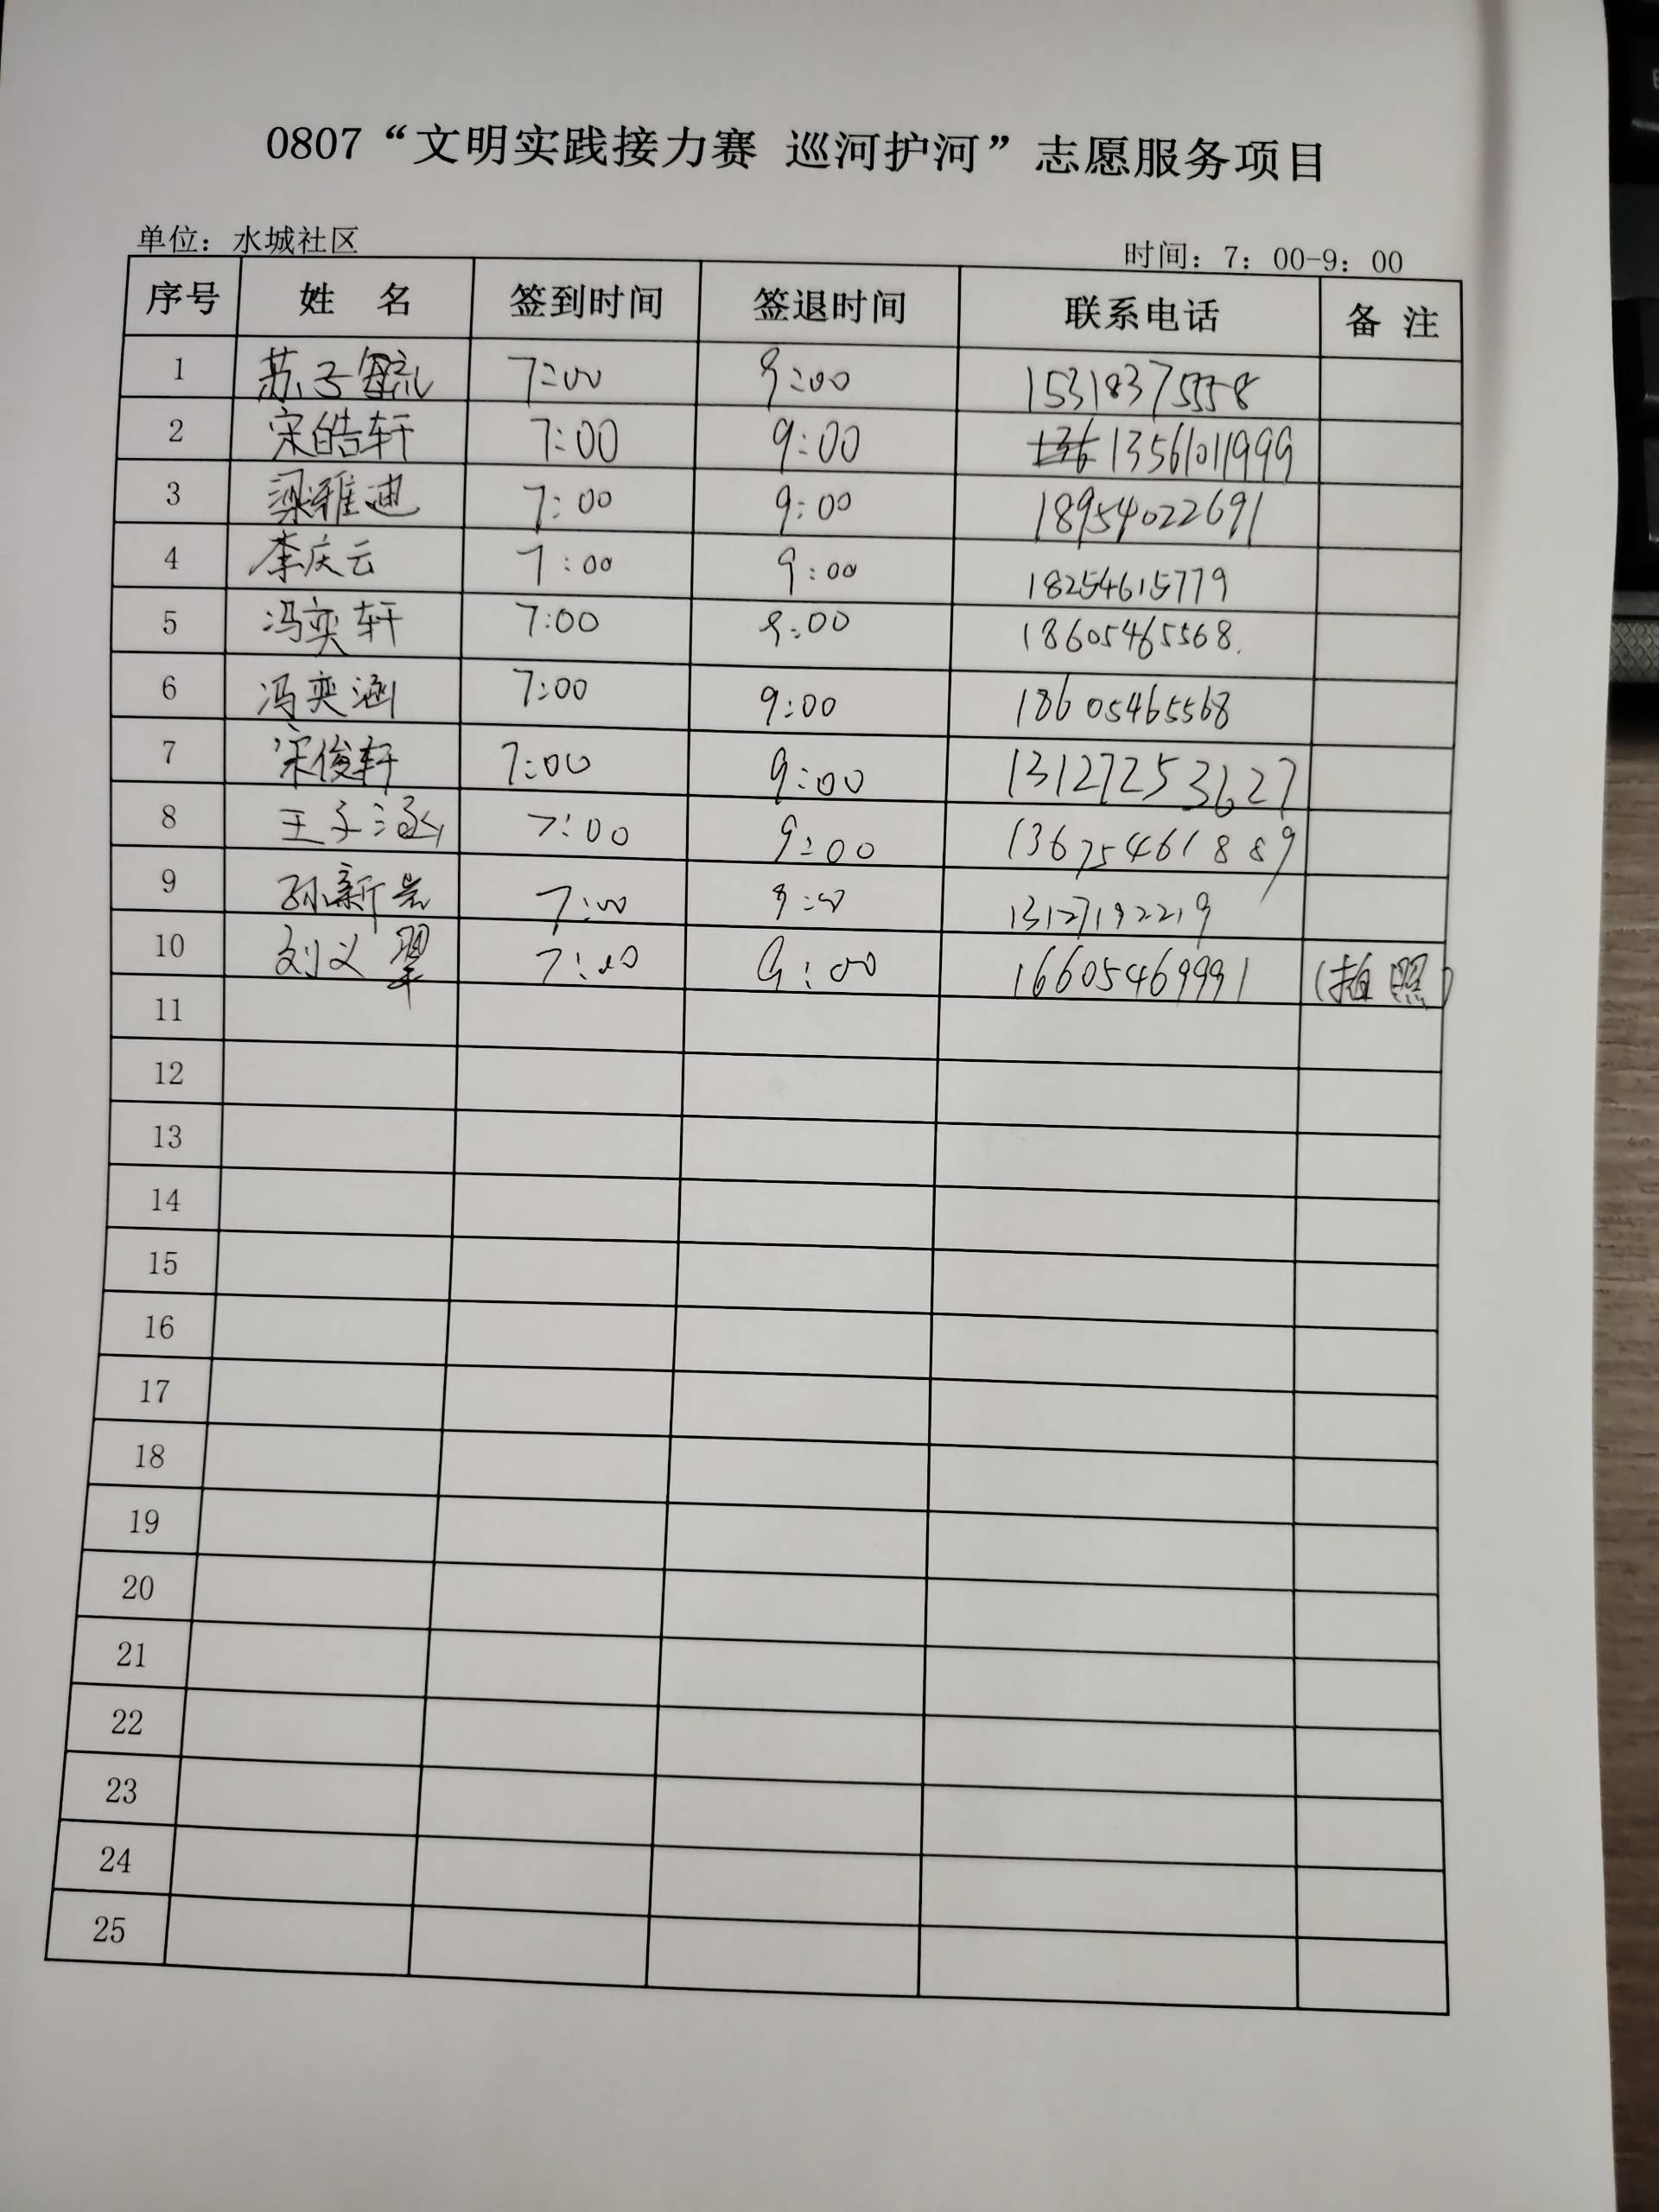 0807“文明实践接力赛 巡河护河”志愿服务项目
单位：水城社区 时间：7：00-9：00
序号 姓 名 签到时间 签退时间 联系电话 备 注
1 苏子毓 7:00 9:00 15318375558
2 宋皓轩 7:00 9:00 13561011999
3 梁雅迪 7:00 9:00 18954022691
4 李庆云 7:00 9:00 18254615779
5 冯奕轩 7:00 9:00 18605465568.
6 冯奕涵 7:00 9:00 18605465568
7 宋俊轩 7:00 9:00 13127253627
8 王子涵 7:00 9:00 13675461889
9 孙新 7:00 9:00 13127192219
10 刘义翠 7:00 9:00 16605469991 (拍照)
11
12
13
14
15
16
17
18
19
20
21
22
23
24
25